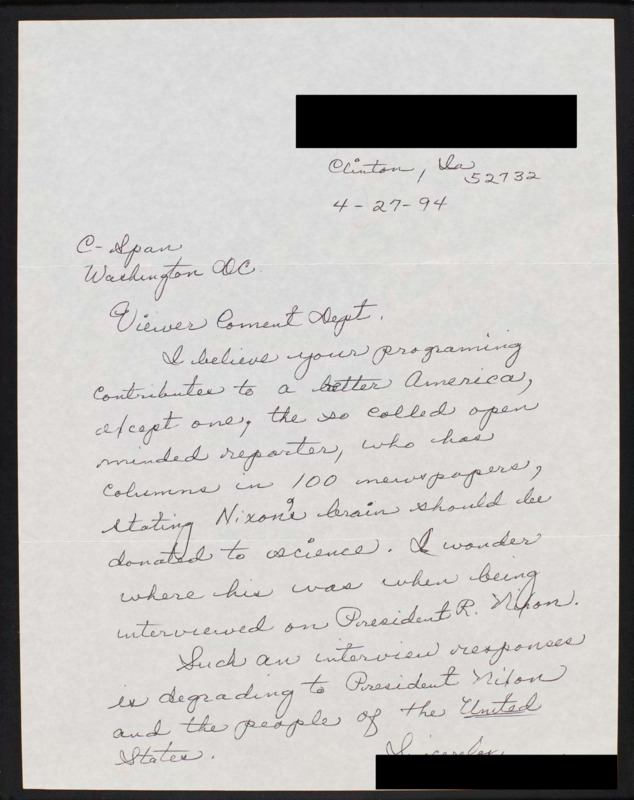 Clinton, Ia
52732
4-27-94
C-Span
Washington DC.
Viewer Coment Dept.
I believe your programing
contributes to a better America,
except one, the so called open
minded reporter, who has
columns in 100 newspapers,
stating Nixon's brain should be
donated to science. I wonder
where his was when being
interviewed on President R. Nixon.
Such an interview responses
is degrading to President Nixon
and the people of the United
States.
Sincerely,